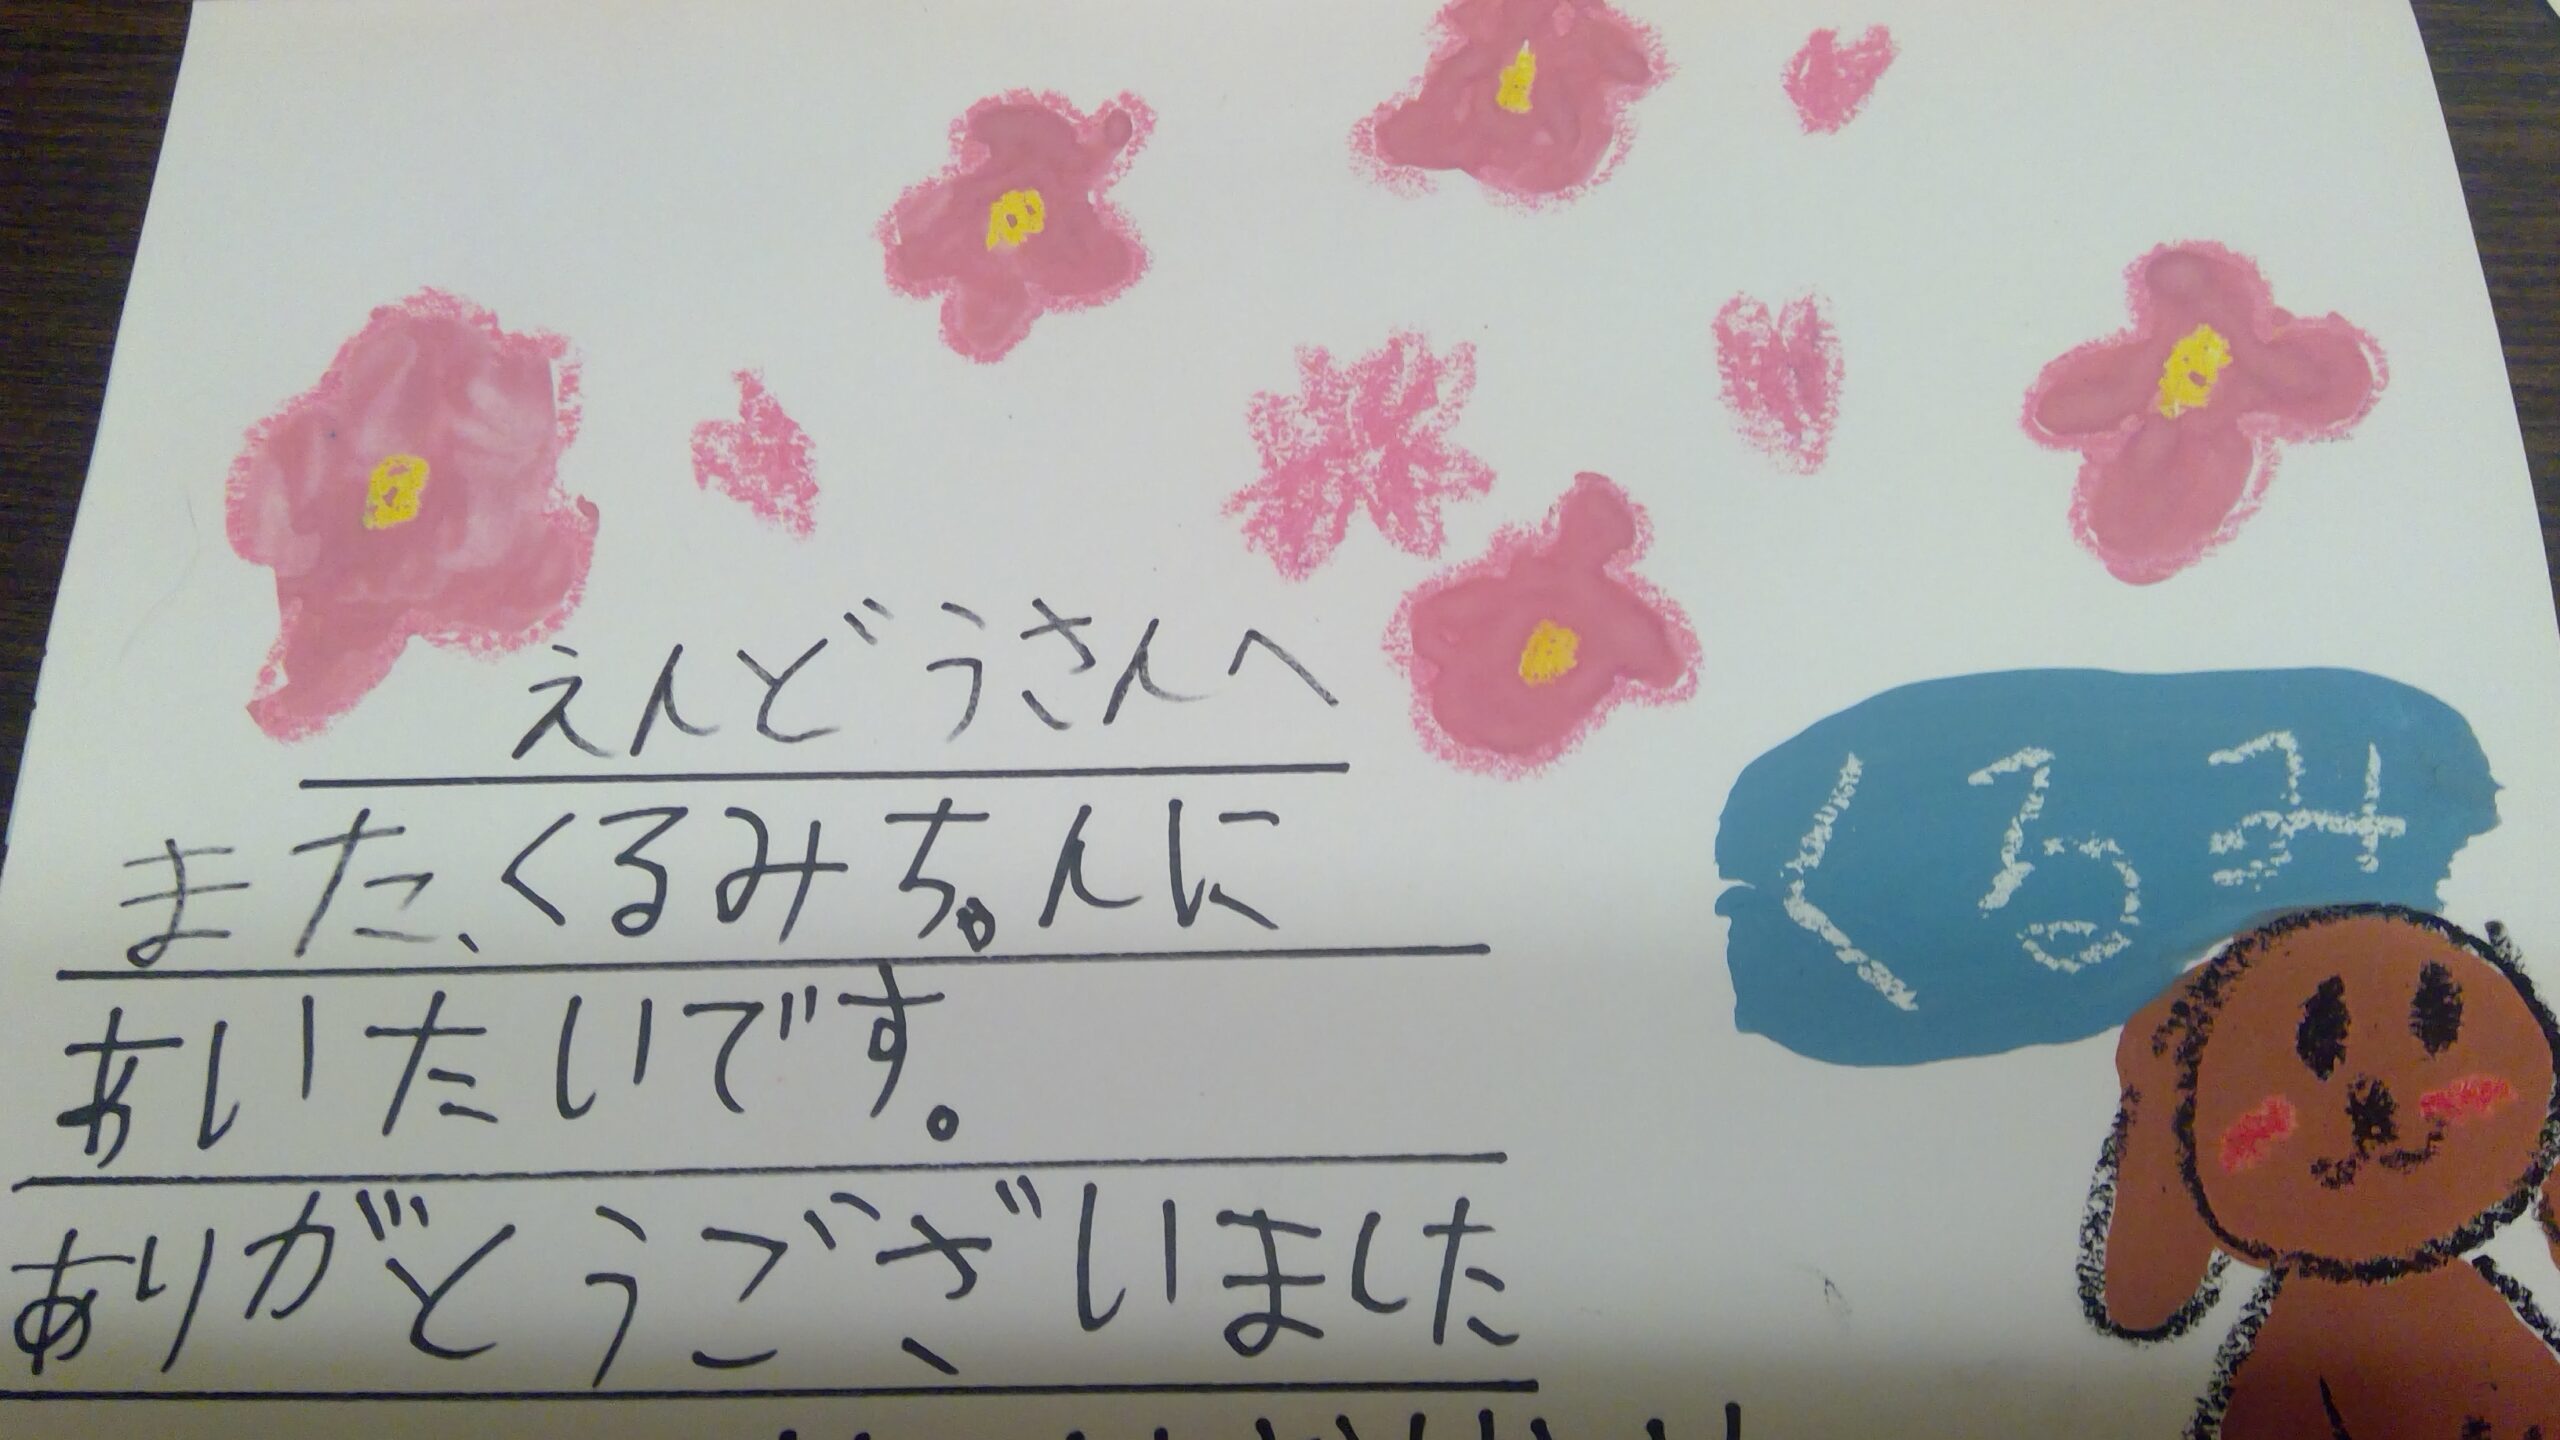 えんどうさんへ
また、くるみちゃんに
あいたいです。
ありがとうございました
くるみ